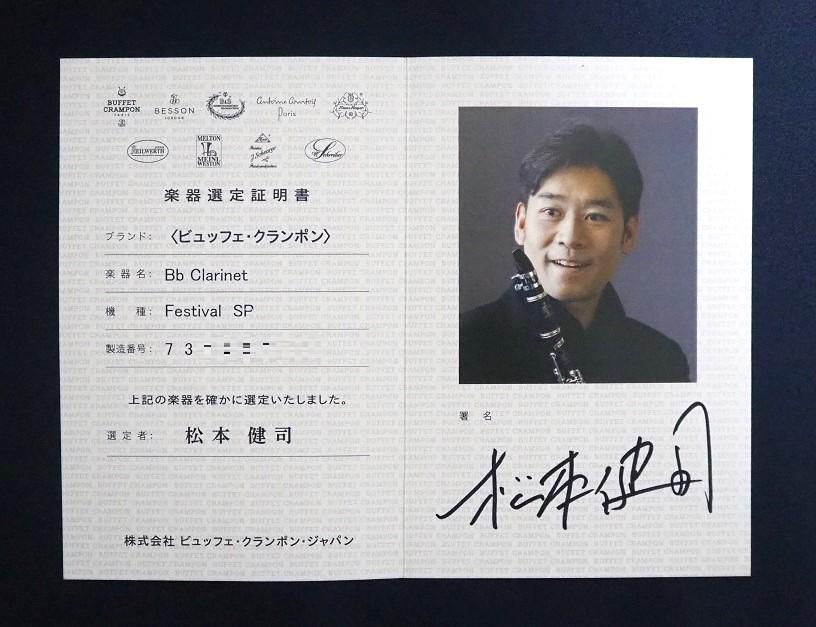 BUFFET
CRAMPON
PARIS
BESSON
LONDON
B&S
Antoine Courtois
Paris
KEILWERTH
MELTON
MEINL
WESTON
J. Scherzer
Schreiber
楽器選定証明書
ブランド: 〈ビュッフェ・クランポン〉
楽器名: Bb Clarinet
機種: Festival SP
製造番号: 73
上記の楽器を確かに選定いたしました。
選定者: 松本 健司
株式会社 ビュッフェ・クランポン・ジャパン
署名
松本健司